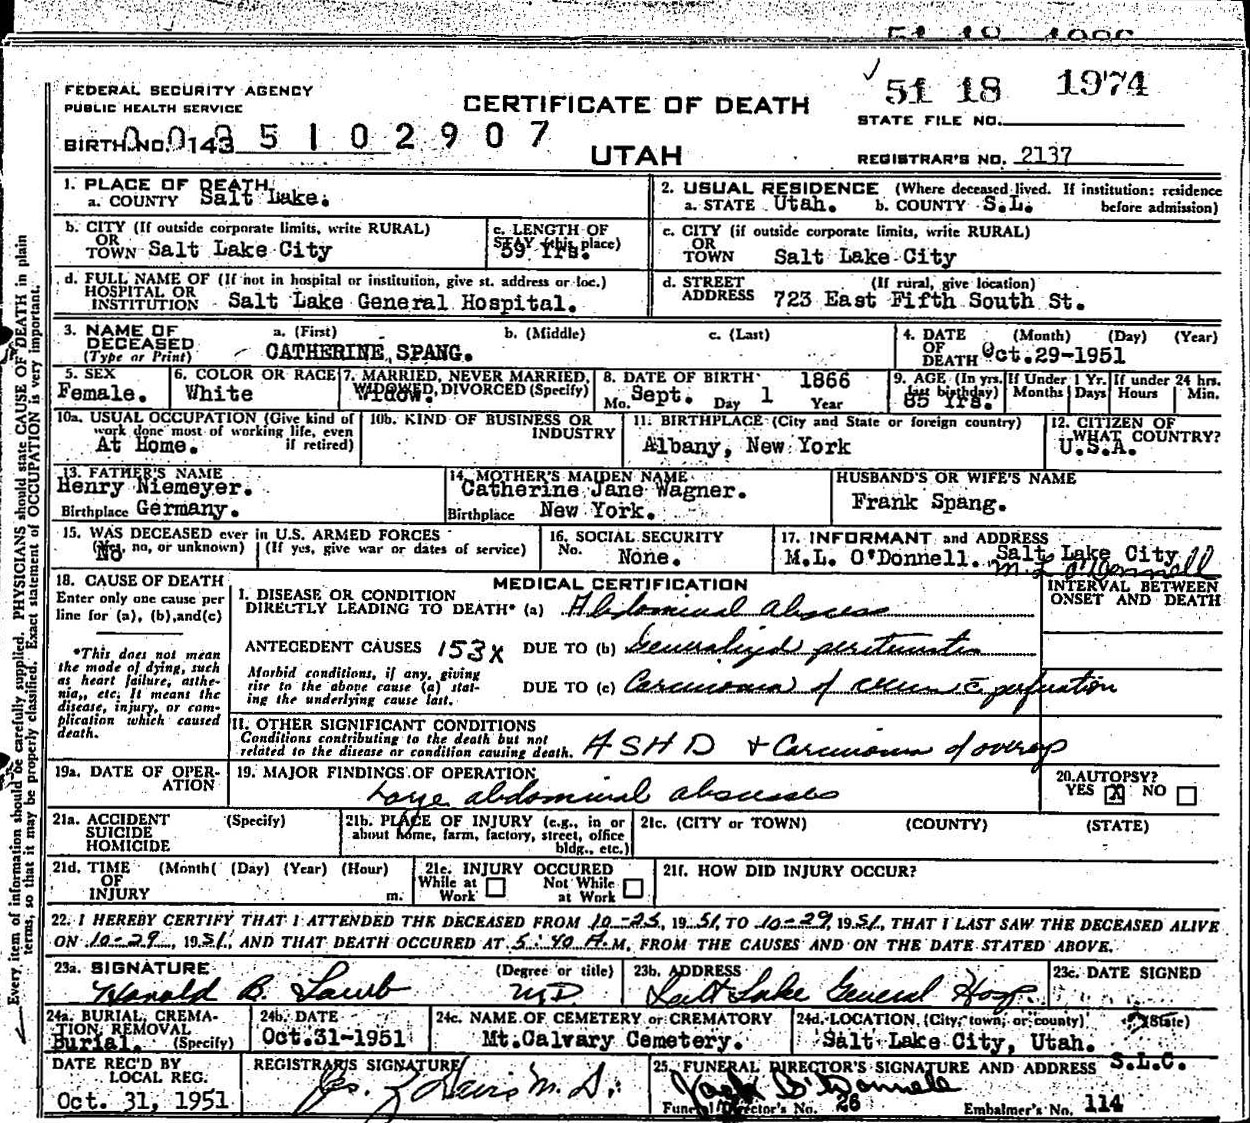 51 18 1974
FEDERAL SECURITY AGENCY
PUBLIC HEALTH SERVICE
CERTIFICATE OF DEATH
STATE FILE NO.
BIRTH NO. 143 5102907
UTAH
REGISTRAR'S NO. 2137
1. PLACE OF DEATH
a. COUNTY Salt Lake.
2. USUAL RESIDENCE (Where deceased lived. If institution: residence before admission)
a. STATE Utah. b. COUNTY S.L.
b. CITY (If outside corporate limits, write RURAL)
OR
TOWN Salt Lake City
c. LENGTH OF
STAY (this place)
59 Yrs.
c. CITY (if outside corporate limits, write RURAL)
OR
TOWN Salt Lake City
d. FULL NAME OF (If not in hospital or institution, give st. address or loc.)
HOSPITAL OR
INSTITUTION Salt Lake General Hospital.
d. STREET (If rural, give location)
ADDRESS 723 East Fifth South St.
3. NAME OF
DECEASED
(Type or Print)
a. (First) b. (Middle) c. (Last)
CATHERINE SPANG.
4. DATE (Month) (Day) (Year)
OF
DEATH Oct.29-1951
5. SEX
Female.
6. COLOR OR RACE
White
7. MARRIED, NEVER MARRIED,
WIDOWED, DIVORCED (Specify)
Widow.
8. DATE OF BIRTH
Mo. Sept. Day 1 Year 1866
9. AGE (In yrs.
last birthday)
85 Yrs.
If Under 1 Yr.
Months Days
If under 24 hrs.
Hours Min.
10a. USUAL OCCUPATION (Give kind of
work done most of working life, even
if retired)
At Home.
10b. KIND OF BUSINESS OR
INDUSTRY
11. BIRTHPLACE (City and State or foreign country)
Albany, New York
12. CITIZEN OF
WHAT COUNTRY?
U.S.A.
13. FATHER'S NAME
Henry Niemeyer.
Birthplace Germany.
14. MOTHER'S MAIDEN NAME
Catherine Jane Wagner.
Birthplace New York.
HUSBAND'S OR WIFE'S NAME
Frank Spang.
15. WAS DECEASED ever in U.S. ARMED FORCES
(Yes, no, or unknown) (If yes, give war or dates of service)
No
16. SOCIAL SECURITY
No. None.
17. INFORMANT and ADDRESS
M.L. O'Donnell. Salt Lake City
M. L. O'Donnell
18. CAUSE OF DEATH
Enter only one cause per
line for (a), (b),and(c)
*This does not mean
the mode of dying, such
as heart failure, asthe-
nia,, etc. It means the
disease, injury, or com-
plication which caused
death.
MEDICAL CERTIFICATION
INTERVAL BETWEEN
ONSET AND DEATH
I. DISEASE OR CONDITION
DIRECTLY LEADING TO DEATH* (a) Abdominal abscess
ANTECEDENT CAUSES 153x DUE TO (b) Generalized peritonitis
Morbid conditions, if any, giving
rise to the above cause (a) stat-
ing the underlying cause last.
DUE TO (c) Carcinoma of cecum c̄ perforation
II. OTHER SIGNIFICANT CONDITIONS
Conditions contributing to the death but not
related to the disease or condition causing death. ASHD + Carcinoma of ovary
19a. DATE OF OPER-
ATION
19. MAJOR FINDINGS OF OPERATION
Large abdominal abscesses
20. AUTOPSY?
YES X NO
21a. ACCIDENT (Specify)
SUICIDE
HOMICIDE
21b. PLACE OF INJURY (e.g., in or
about home, farm, factory, street, office
bldg., etc.)
21c. (CITY or TOWN) (COUNTY) (STATE)
21d. TIME (Month( (Day) (Year) (Hour)
OF
INJURY m.
21e. INJURY OCCURED
While at Work Not While at Work
21f. HOW DID INJURY OCCUR?
22. I HEREBY CERTIFY THAT I ATTENDED THE DECEASED FROM 10-23, 1951, TO 10-29, 1951, THAT I LAST SAW THE DECEASED ALIVE
ON 10-29, 1951, AND THAT DEATH OCCURED AT 5:40 A M, FROM THE CAUSES AND ON THE DATE STATED ABOVE.
23a. SIGNATURE (Degree or title)
Harold B. Lamb MD
23b. ADDRESS
Salt Lake General Hosp.
23c. DATE SIGNED
24a. BURIAL, CREMA-
TION, REMOVAL
(Specify)
Burial.
24b. DATE
Oct.31-1951
24c. NAME OF CEMETERY or CREMATORY
Mt.Calvary Cemetery.
24d. LOCATION (City, town, or county) (State)
Salt Lake City, Utah.
DATE REC'D BY
LOCAL REG.
Oct. 31, 1951
REGISTRAR'S SIGNATURE
M.D.
25. FUNERAL DIRECTOR'S SIGNATURE AND ADDRESS S.L.C.
O'Donnell
Funeral Director's No. 26 Embalmer's No. 114
Every item of information should be carefully supplied. PHYSICIANS should state CAUSE OF DEATH in plain
terms, so that it may be properly classified. Exact statement of OCCUPATION is very important.